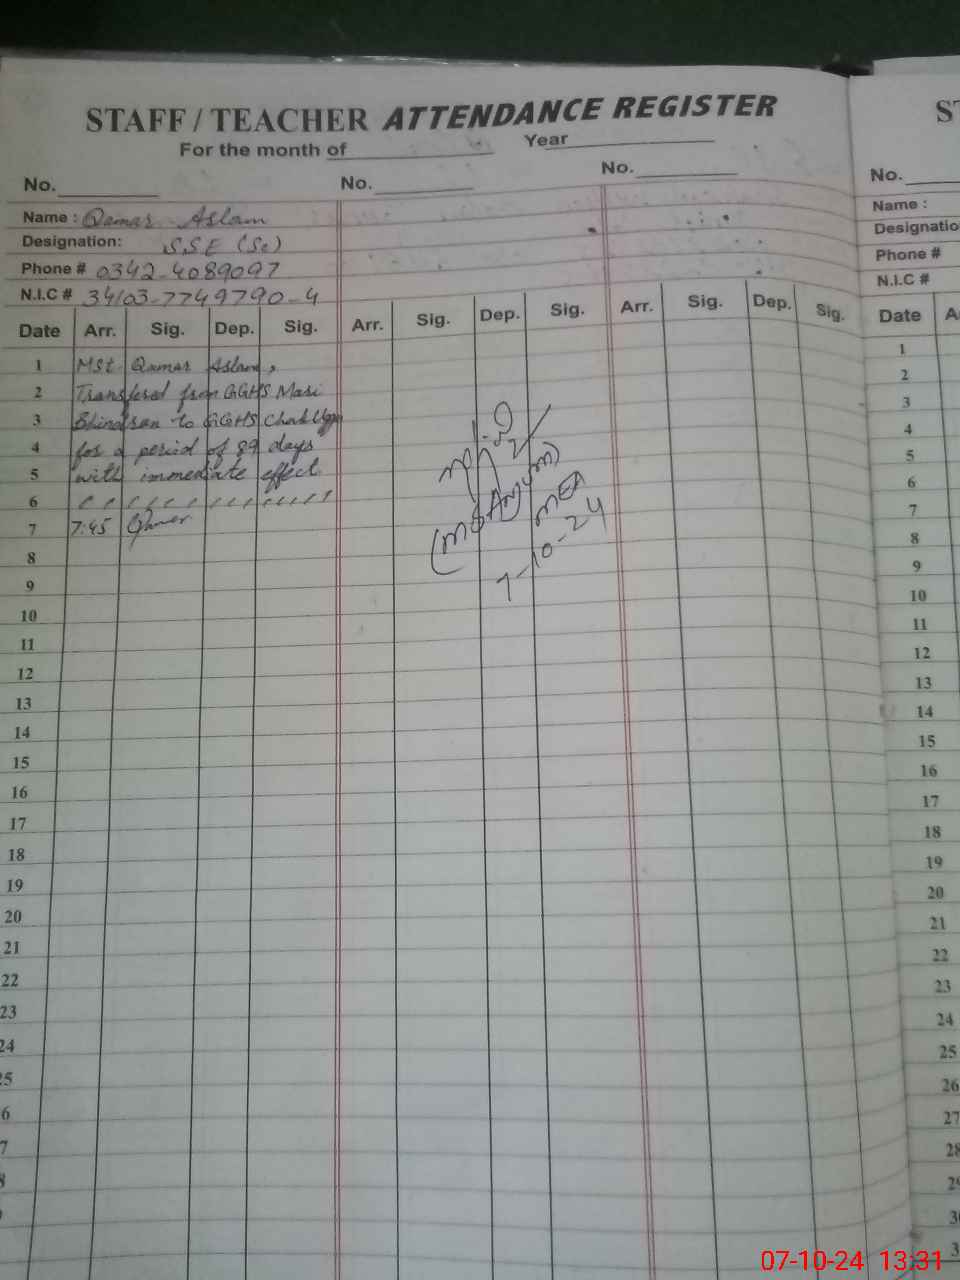 STAFF / TEACHER ATTENDANCE REGISTER
For the month of Year
No. No. No.
Name : Qamar Aslam
Designation: S.S.E (Sc)
Phone # 0342-4089097
N.I.C # 34103-7749790-4
Date Arr. Sig. Dep. Sig. Arr. Sig. Dep. Sig. Arr. Sig. Dep. Sig.
1 Mst. Qamar Aslam,
2 Transfered from GGHS Mari
3 Bhindran to GGHS Chak
4 for a period of 89 days
5 with immediate effect.
6
7 7:45 Qamar
8
9
10
11
12
13
14
15
16
17
18
19
20
21
22
23
24
25
6
7
8
MEA
7-10-24
ST
No.
Name :
Designatio
Phone #
N.I.C #
Date A
1
2
3
4
5
6
7
8
9
10
11
12
13
14
15
16
17
18
19
20
21
22
23
24
25
26
27
28
29
30
3
07-10-24 13:31